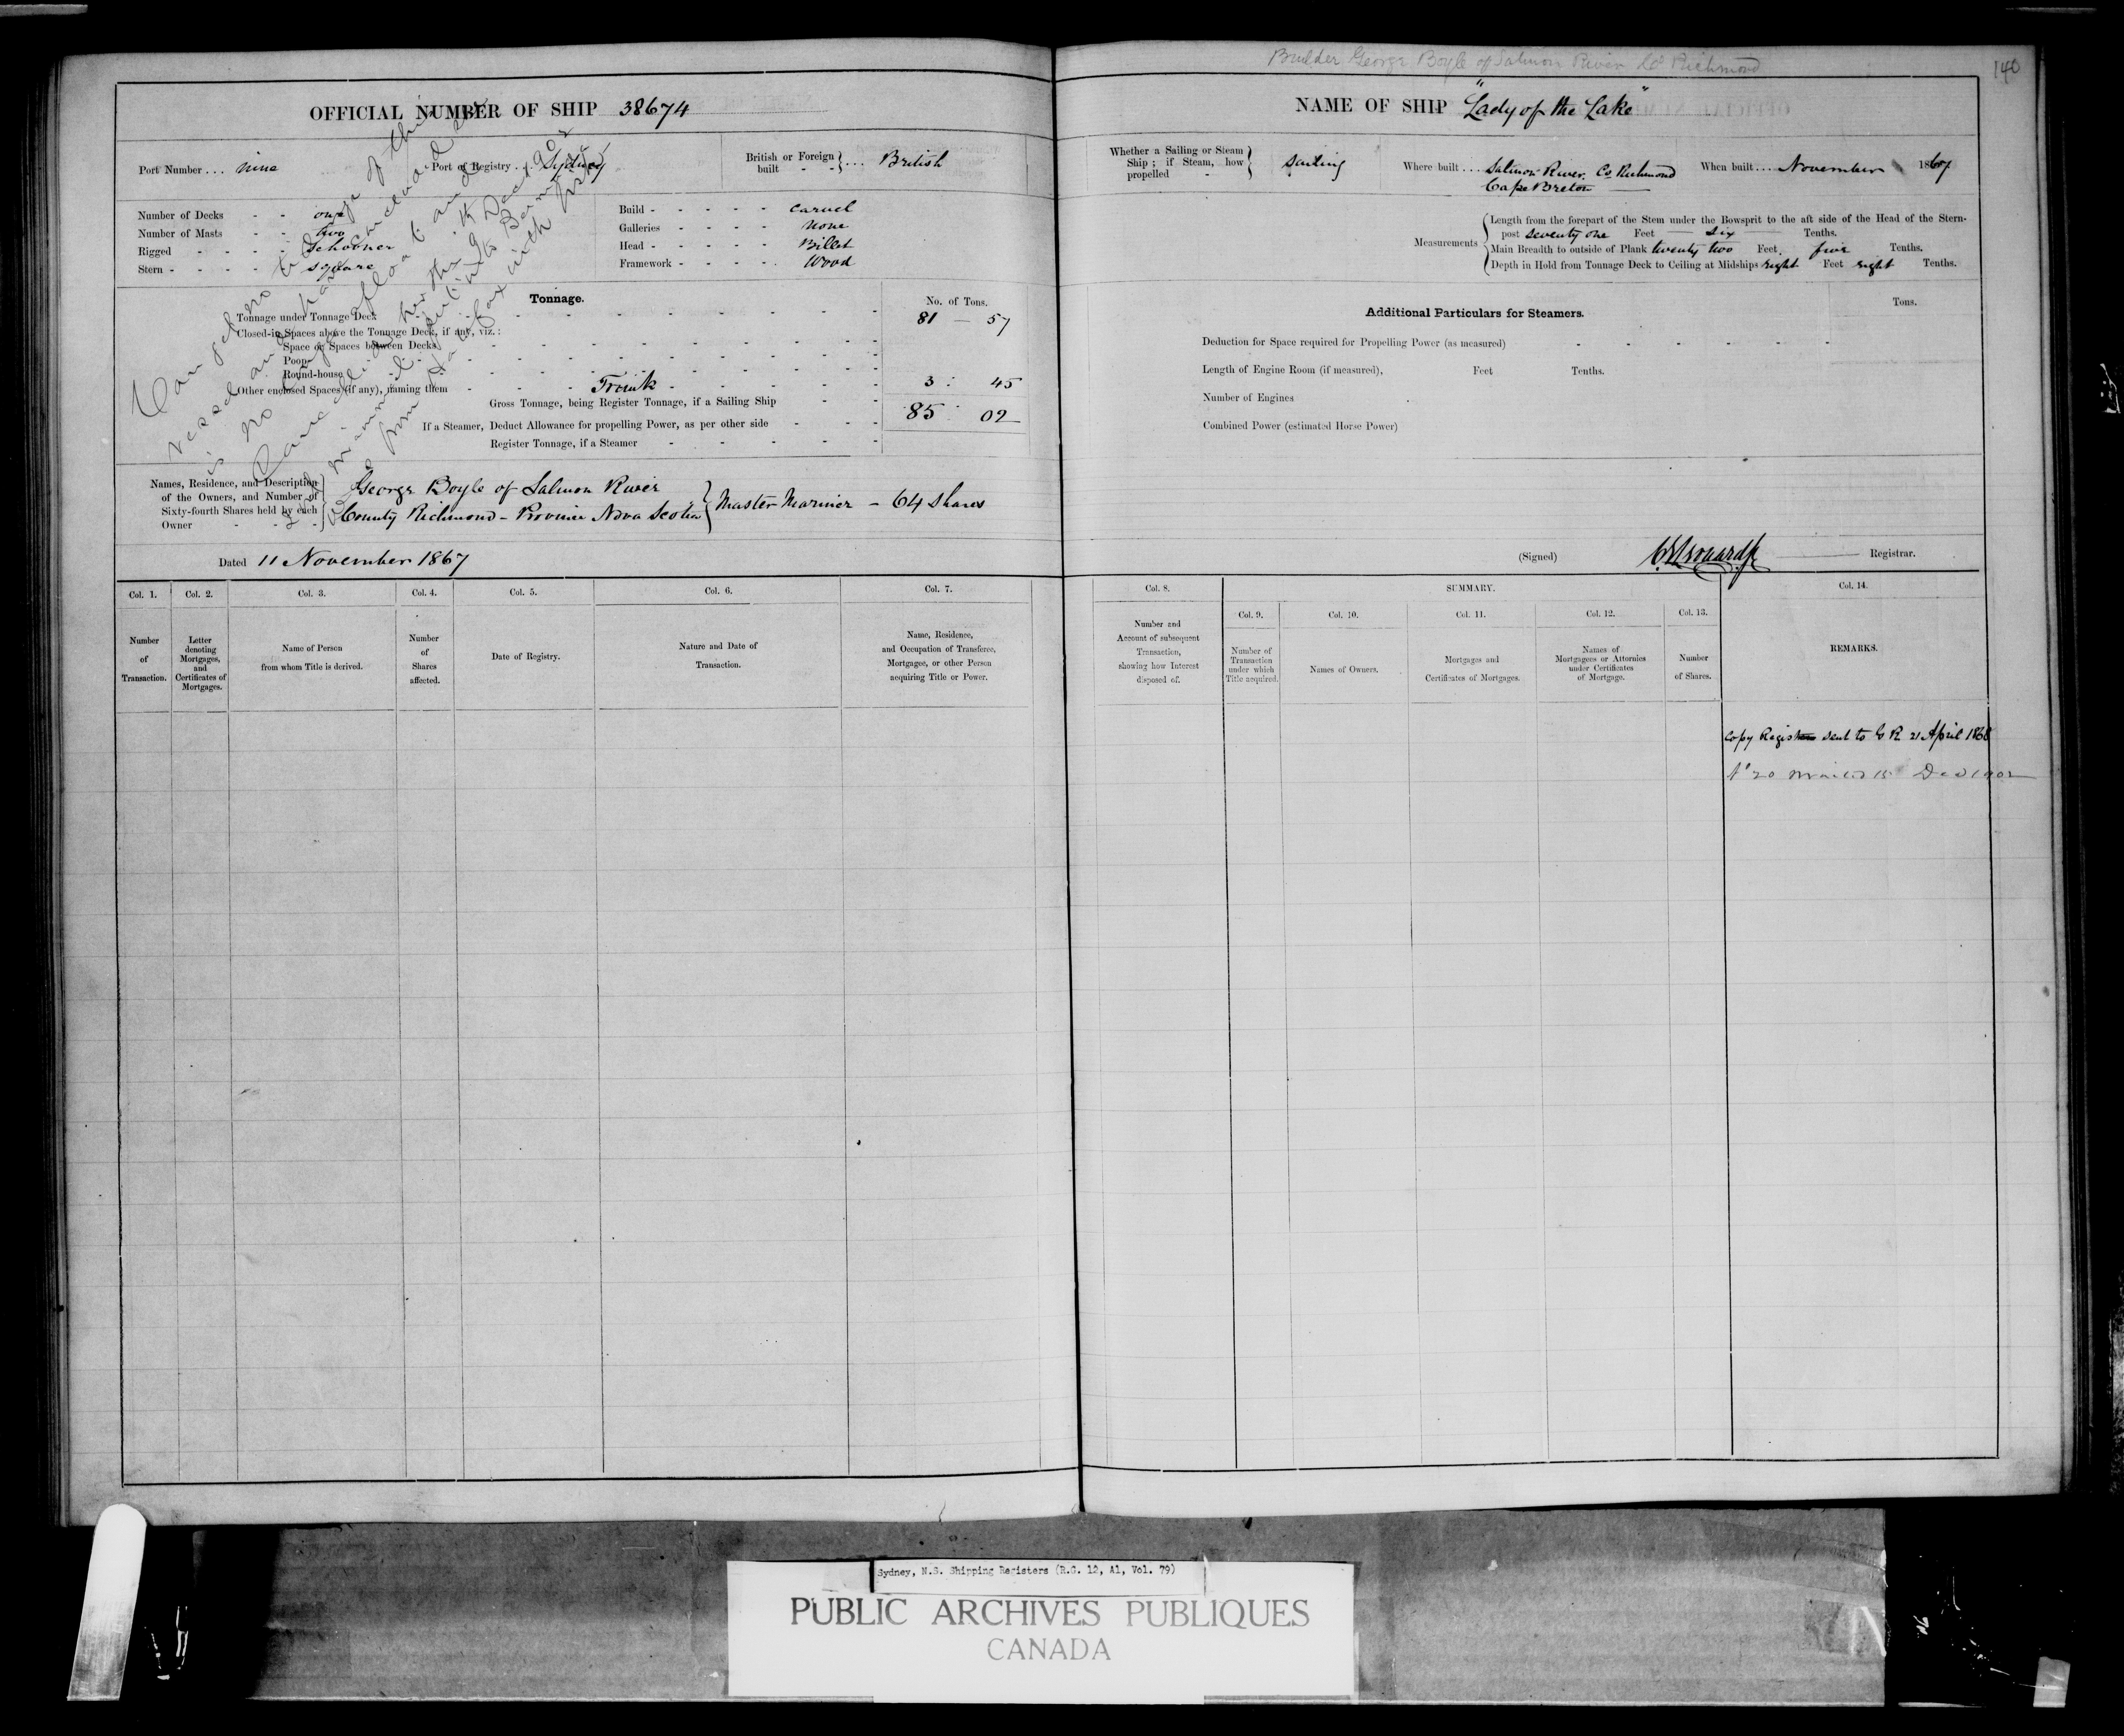 Builder George Boyle of Salmon River Co Richmond
140
OFFICIAL NUMBER OF SHIP 38674
NAME OF SHIP "Lady of the Lake"
Port Number ... nine
Port of Registry ... Sydney
British or Foreign built - - } ... British
Whether a Sailing or Steam Ship; if Steam, how propelled - } Sailing
Where built ... Salmon River Co Richmond
Cape Breton
When built ... November 1867
Number of Decks - - one
Number of Masts - - two
Rigged - - - - Schooner
Stern - - - - - square
Build - - - - - Carvel
Galleries - - - - None
Head - - - - - Billet
Framework - - - - Wood
Measurements
Length from the forepart of the Stem under the Bowsprit to the aft side of the Head of the Stern-
post seventy one Feet six Tenths.
Main Breadth to outside of Plank twenty two Feet five Tenths.
Depth in Hold from Tonnage Deck to Ceiling at Midships eight Feet eight Tenths.
Tonnage.
No. of Tons.
Tonnage under Tonnage Deck 81 57
Closed-in Spaces above the Tonnage Deck, if any, viz.:
Space or Spaces between Decks
Poop
Round-house
Other enclosed Spaces (if any), naming them - - - Trunk - 3 : 45
Gross Tonnage, being Register Tonnage, if a Sailing Ship - - 85 02
If a Steamer, Deduct Allowance for propelling Power, as per other side
Register Tonnage, if a Steamer
Additional Particulars for Steamers.
Tons.
Deduction for Space required for Propelling Power (as measured)
Length of Engine Room (if measured), Feet Tenths.
Number of Engines
Combined Power (estimated Horse Power)
Names, Residence, and Description
of the Owners, and Number of
Sixty-fourth Shares held by each
Owner
George Boyle of Salmon River
County Richmond - Province Nova Scotia } Master Mariner - 64 Shares
Dated 11 November 1867
(Signed) Registrar.
Col. 1. Col. 2. Col. 3. Col. 4. Col. 5. Col. 6. Col. 7.
Number of Transaction.
Letter denoting Mortgages, and Certificates of Mortgages.
Name of Person from whom Title is derived.
Number of Shares affected.
Date of Registry.
Nature and Date of Transaction.
Name, Residence, and Occupation of Transferee, Mortgagee, or other Person acquiring Title or Power.
Col. 8. SUMMARY. Col. 14.
Col. 9. Col. 10. Col. 11. Col. 12. Col. 13.
Number and Account of subsequent Transaction, showing how Interest disposed of.
Number of Transaction under which Title acquired.
Names of Owners.
Mortgages and Certificates of Mortgages.
Names of Mortgagees or Attornies under Certificates of Mortgage.
Number of Shares.
REMARKS.
Copy Register sent to G R 21 April 1868
No 20 mailed 15 Dec 1902
Sydney, N.S. Shipping Registers (R.G. 12, A1, Vol. 79)
PUBLIC ARCHIVES PUBLIQUES
CANADA